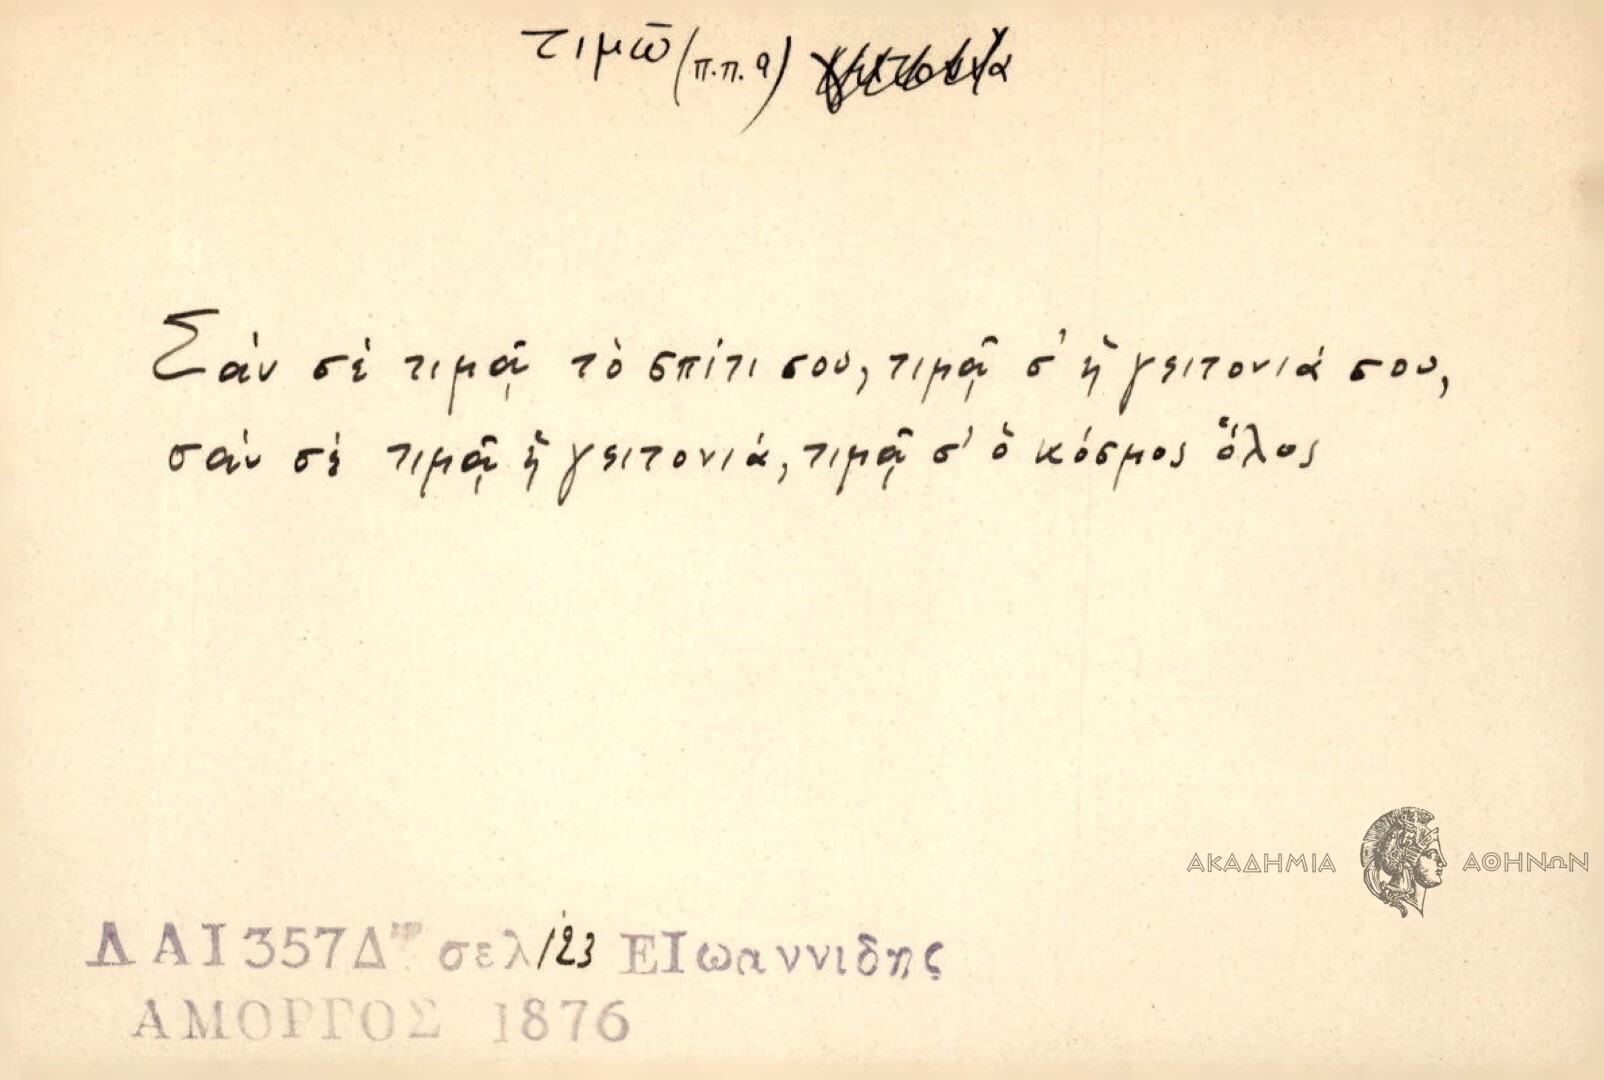 τιμῶ (π.π. 9) γειτονιά
Σὰν σὲ τιμᾷ τὸ σπίτι σου, τιμᾷ σ' ἡ γειτονιά σου,
σὰν σὲ τιμᾷ ἡ γειτονιά, τιμᾷ σ' ὁ κόσμος ὅλος
ΑΚΑΔΗΜΙΑ ΑΘΗΝΩΝ
ΛΑΙ357Δ σελ 123 ΕΙωαννιδης
ΑΜΟΡΓΟΣ 1876